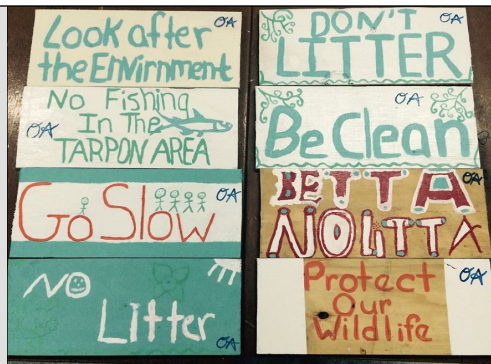 Look after
the Envirnment
OA
No Fishing
In The
TARPON AREA
OA
Go Slow
OA
NO
Litter
OA
DON'T
LITTER
OA
Be Clean
OA
BETTA
NO LITTA
OA
Protect
Our
Wildlife
OA